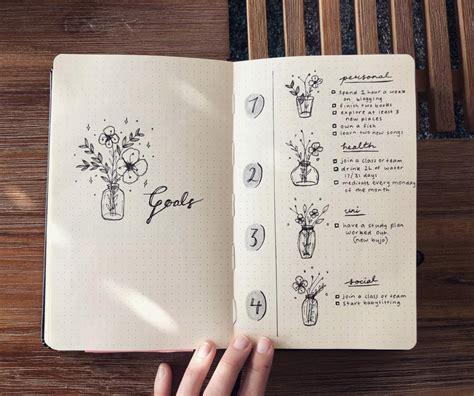 Goals
1
personal
spend 1 hour a week
on blogging
finish two books
explore at least 3
new places
own a fish
learn two new songs
2
health
join a class or team
drink 2L of water
17/31 days
meditate every monday
of the month
3
uni
have a study plan
worked out
(new bujo)
4
social
join a class or team
start babysitting